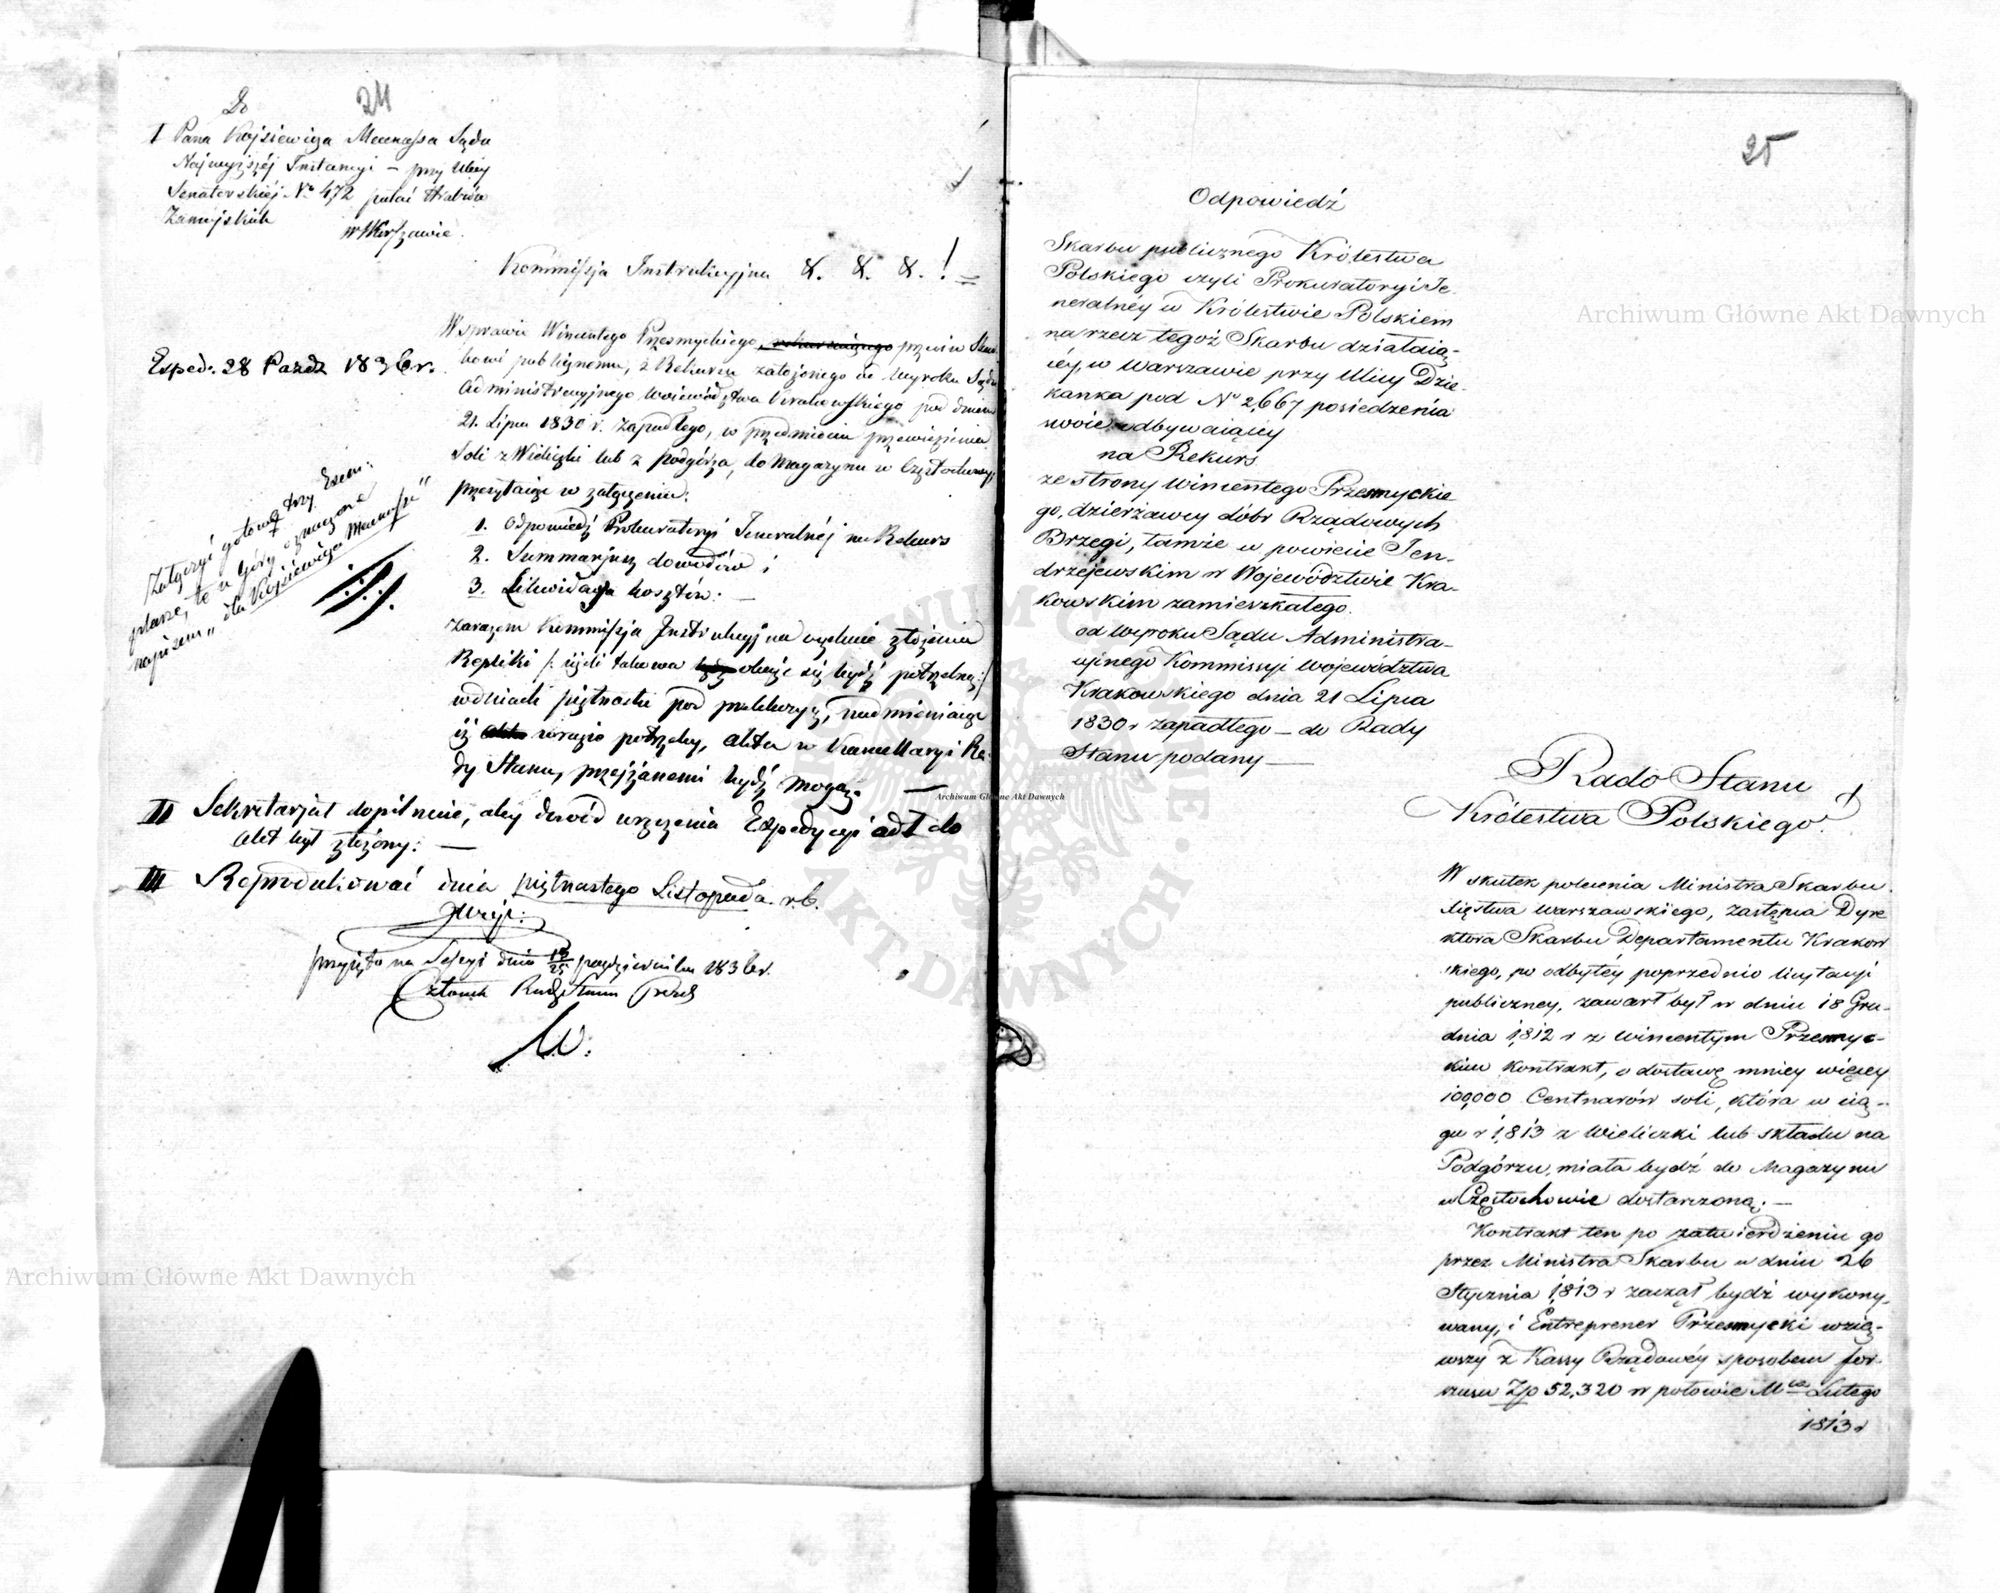 24
Do
I Pana Kojsiewicza Mecenassa Sądu
Najwyższéj Instancyi – przy Ulicy
Senatorskiéj No 472 pałac Hrabiów
Zamojskich
w Warszawie.
Kommissja Instrukcyjna &. &. &. !
Exped. 28 Paźdz 1836 r.
W sprawie Wincentego Przesmyckiego, przeciw Skar-
bowi publicznemu, z Rekursu założonego od Wyroku Sądu
Administracyjnego Województwa Krakowskiego pod dniem
21. Lipca 1830 r. zapadłego, w przedmiocie przewiezienia
Soli z Wieliczki lub z Podgórza, do Magazynu w Częstochowie,
przesyłając w załączeniu.
1. Odpowiedź Prokuratoryi Jeneralnéj na Rekurs
2. Summarjusz dowodów i
3. Likwidacja kosztów: —
Załączyć gotowe trzy Exem:
plarze, te u góry oznaczone
napisem „dla Kojsiewicza Mecenassa"
zarazem Kommissja Instrukcyjna wyda złożenia
Repliki /: jeżeli takowa okaże się być potrzebną :/
w dniach piętnastu pod prekluzyą, nadmieniając
iż w razie potrzeby, akta w Kancellaryi Ra-
dy Stanu, przejrzanemi bydź mogą. —
II Sekretarjat dopilnuie, aby dowód wręczenia Expedycyi ad I do
akt był złożony: —
III Reprodukować dnia piętnastego Listopada r.b.
przyięto na Sessyi dnia 13/25 października 1836 r.
Członek Rady Stanu Prezes
25
Odpowiedź
Skarbu publicznego Królestwa
Polskiego czyli Prokuratoryi Je-
neralnéy w Królestwie Polskiem
na rzecz tegoż Skarbu działaią-
céy, w Warszawie przy Ulicy Dzie-
kanka pod No 2,667 posiedzenia
swoie odbywaiącéy
na Rekurs
ze strony Wincentego Przesmyckie
go, dzierżawcy dóbr Rządowych
Brzegi, tamże w powiecie Jen-
drzejewskim w Województwie Kra-
kowskim zamieszkałego.
od Wyroku Sądu Administra-
cyjnego Kommissyi Województwa
Krakowskiego dnia 21 Lipca
1830 r zapadłego — do Rady
Stanu podany —
Rado Stanu
Królestwa Polskiego!
W skutek polecenia Ministra Skarbu
Xięstwa Warszawskiego, zastępca Dyre
ktora Skarbu Departamentu Krakow
skiego, po odbytéy poprzednio licytacyi
publiczney, zawarł był w dniu 18 Gru-
dnia 1812 r z Wincentym Przesmyc-
kim kontrakt, o dostawę mniey więcey
100,000 Centnarów soli, która w cią-
gu r 1813 z Wieliczki lub składu na
Podgórzu, miała bydź do Magazynu
w Częstochowie dostarczoną: —
Kontrakt ten po zatwierdzeniu go
przez Ministra Skarbu w dniu 26
Stycznia 1813 r zaczął bydź wykony-
wany, i Entreprener Przesmycki wzią-
wszy z Kassy Rządowéy sposobem for-
szusu Złp 52,320 w połowie Mca Lutego
1813 r
Archiwum Główne Akt Dawnych
Archiwum Główne Akt Dawnych
Archiwum Główne Akt Dawnych